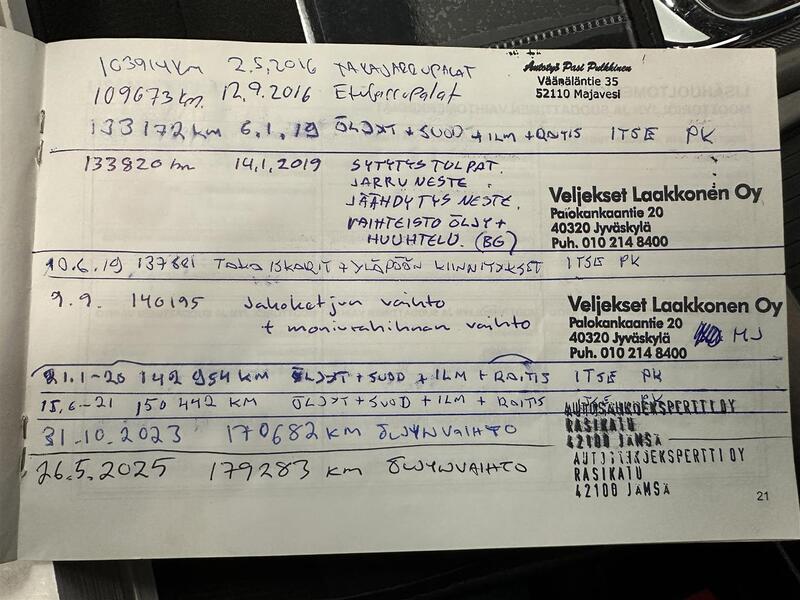 103914 km 2.5.2016 TAKAJARRUPALAT
109673 km 12.9.2016 Etujarrupalat
Autotyö Pasi Pulkkinen
Väänäläntie 35
52110 Majavesi
133172 km 6.1.19 ÖLJYT + SUOD + ILM + RAITIS ITSE PK
133820 km 14.1.2019 SYTYTYSTULPAT.
JARRUNESTE.
JÄÄHDYTYSNESTE.
VAIHTEISTOÖLJY +
HUUHTELU. (BG)
Veljekset Laakkonen Oy
Palokankaantie 20
40320 Jyväskylä
Puh. 010 214 8400
10.6.19 137821 TAKA ISKARIT + YLÄPÄÄN KIINNITYKSET ITSE PK
9.9. 140195 Jakoketjun vaihto
+ moniurahihnan vaihto
Veljekset Laakkonen Oy
Palokankaantie 20
40320 Jyväskylä MJ
Puh. 010 214 8400
21.1-20 142 954 KM ÖLJYT + SUOD + ILM + RAITIS ITSE PK
15.6-21 150 442 KM ÖLJYT + SUOD + ILM + RAITIS ITSE PK
31.10.2023 170682 km ÖLJYNVAIHTO
AUTOSÄHKÖEKSPERTTI OY
RASIKATU
42100 JÄMSÄ
26.5.2025 179283 km ÖLJYNVAIHTO
AUTOSÄHKÖEKSPERTTI OY
RASIKATU
42100 JÄMSÄ
21